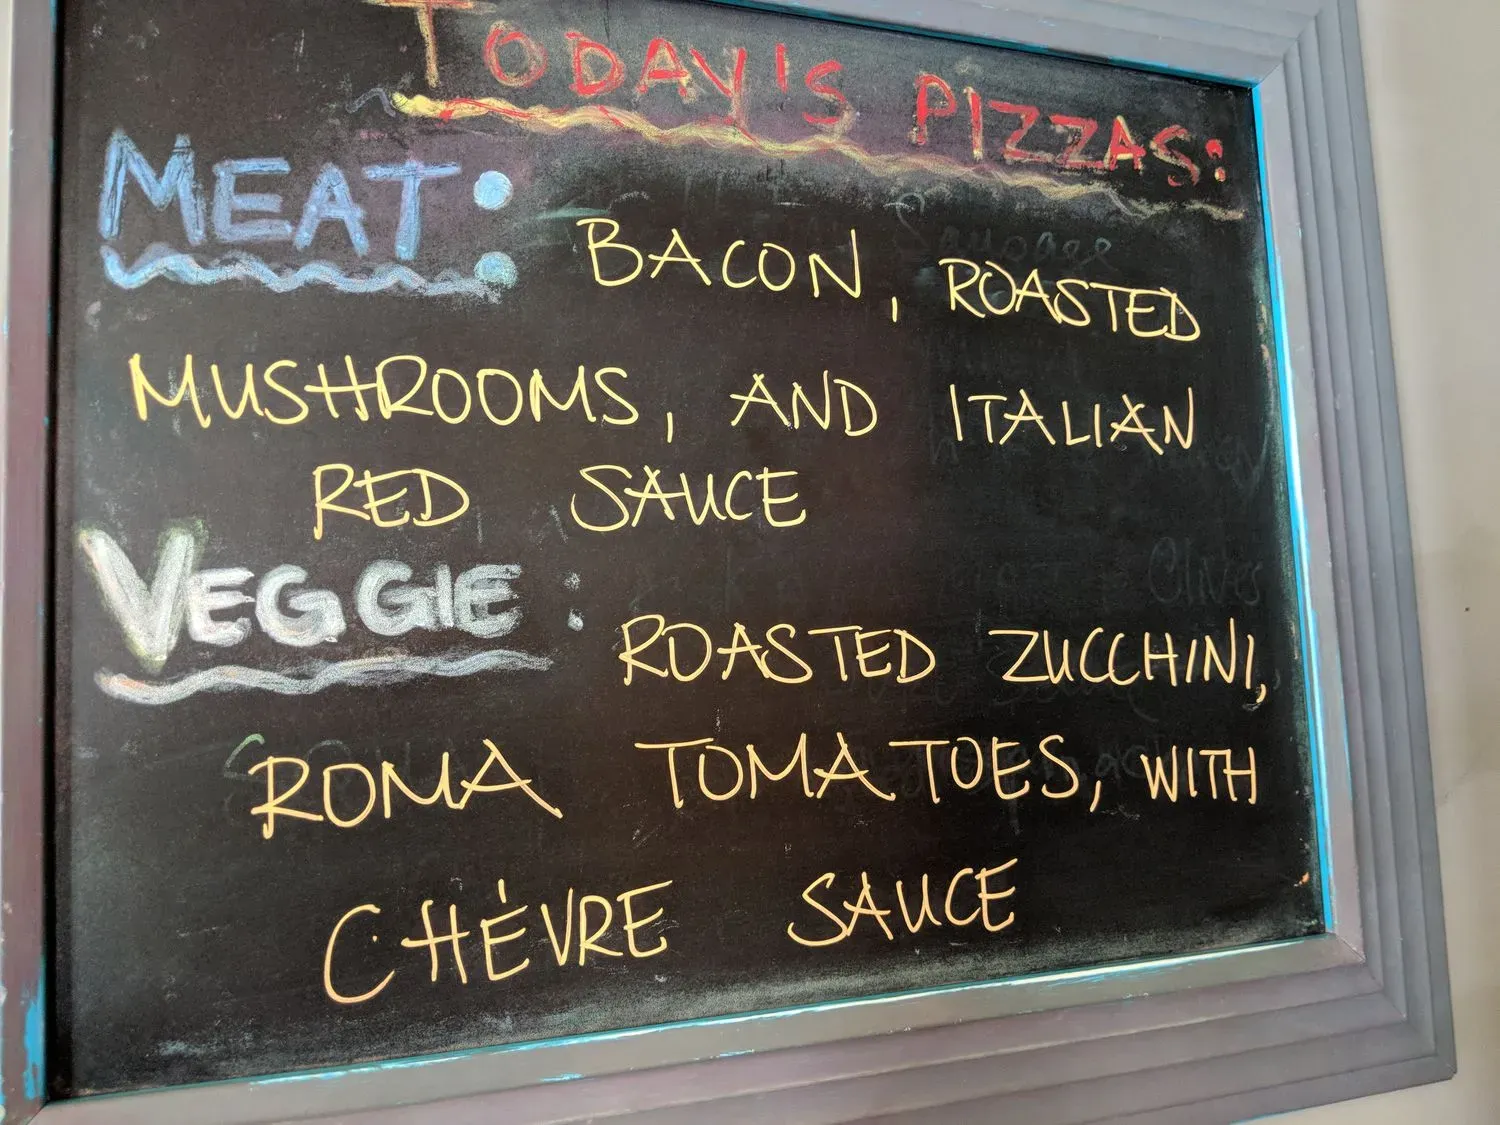 TODAY'S PIZZAS:
MEAT: BACON, ROASTED
MUSHROOMS, AND ITALIAN
RED SAUCE
VEGGIE: ROASTED ZUCCHINI,
ROMA TOMATOES, WITH
CHÈVRE SAUCE